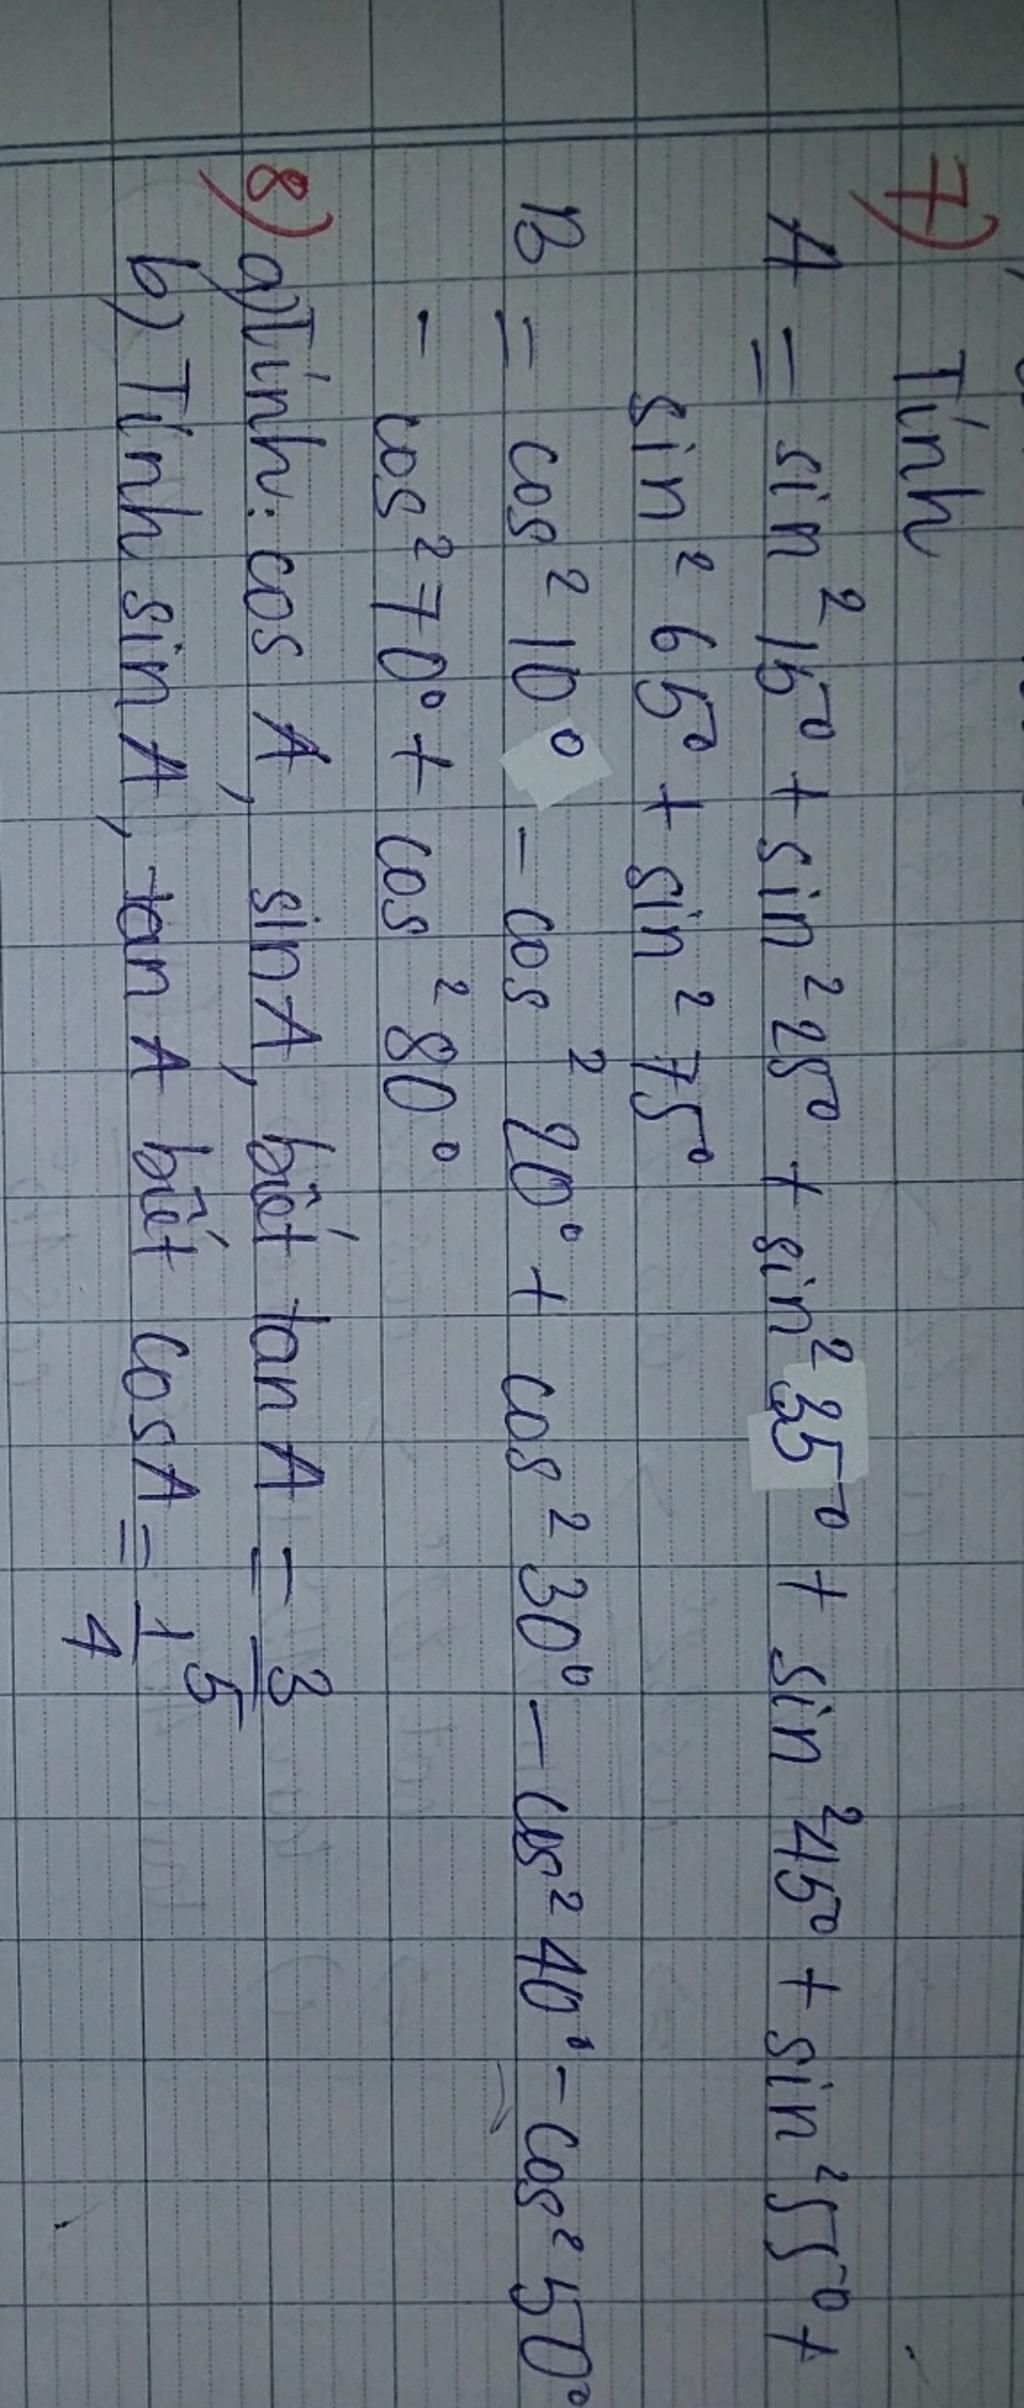 7) Tính
A = sin²15° + sin²25° + sin²35° + sin²45° + sin²55° +
sin²65° + sin²75°
B = cos²10° - cos²20° + cos²30° - cos²40° - cos²50°
- cos²70° + cos²80°
8) a) Tính: cos A, sin A, biết tan A = 3/5
b) Tính sin A, tan A biết cos A = 1/4